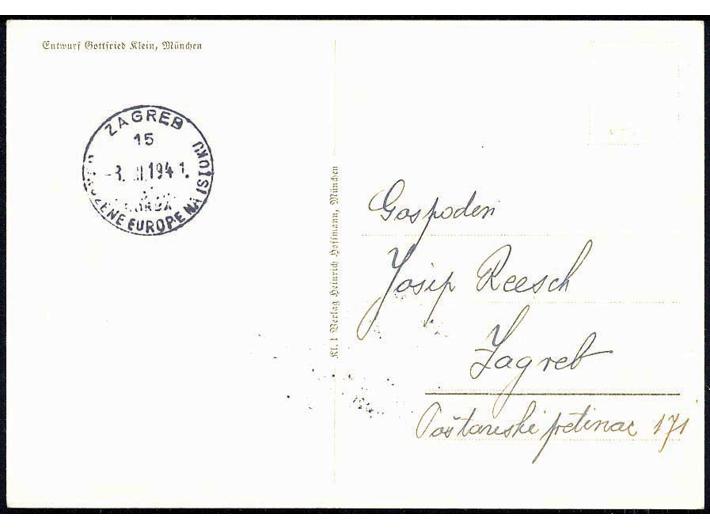 Entwurf Gottfried Klein, München
ZAGREB
15
1941.
EUROPE NA ISTOKU
Kl. 1 Verlag Heinrich Hoffmann, München
Gospodin
Josip Reesch
Zagreb
Poštanski pretinac 171